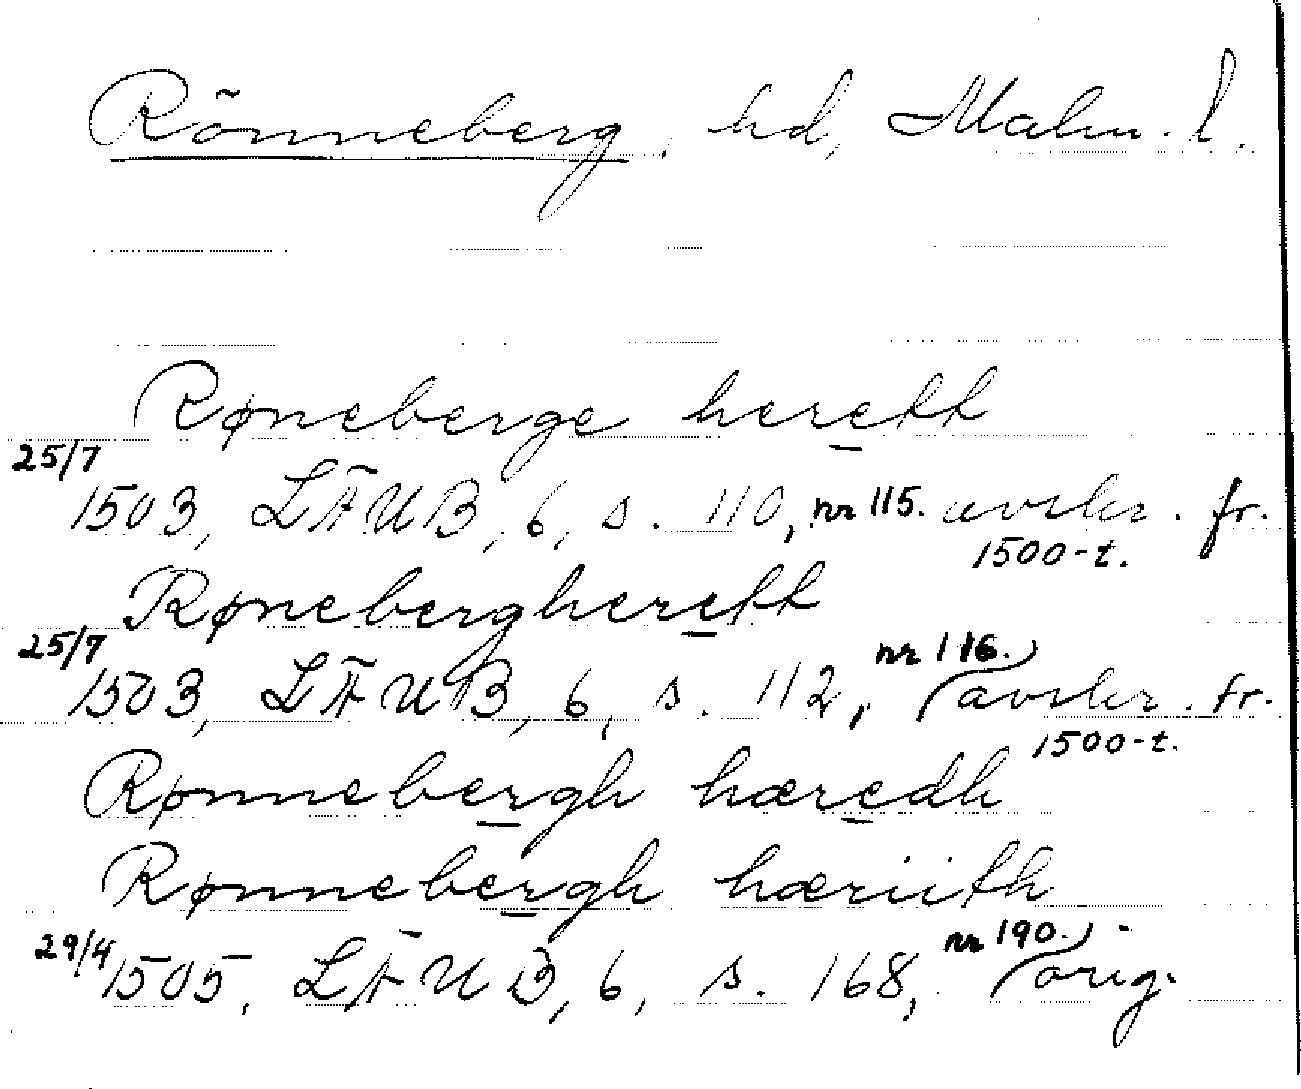 Rönneberg, hd, Malm. l.
Røneberge herett
25/7 1503, LÄUB, 6, s. 110, nr 115. avskr. fr. 1500-t.
Rønebergherett
25/7 1503, LÄUB, 6, s. 112, nr 116. avskr. fr. 1500-t.
Rønnebergh hæredh
Rønnebergh hæriith
29/4 1505, LÄUB, 6, s. 168, nr 190. orig.